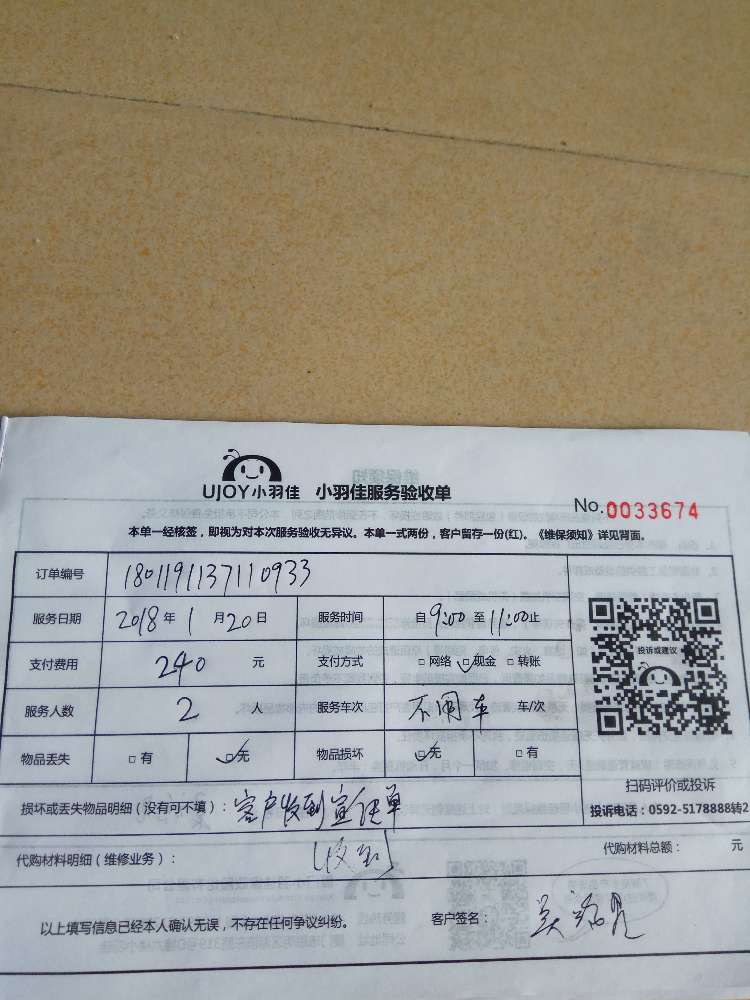 UJOY小羽佳 小羽佳服务验收单
No.0033674
本单一经核签，即视为对本次服务验收无异议。本单一式两份，客户留存一份(红)。《维保须知》详见背面。
订单编号 1801191137110933
服务日期 2018年1月20日 服务时间 自9:00至11:00止
投诉或建议
支付费用 240 元 支付方式 □网络 □现金 □转账
服务人数 2 人 服务车次 不用车 车/次
物品丢失 □有 □无 物品损坏 □无 □有
扫码评价或投诉
损坏或丢失物品明细（没有可不填）：客户收到宣传单
投诉电话：0592-5178888转2
代购材料明细（维修业务）： (收到) 代购材料总额： 元
以上填写信息已经本人确认无误，不存在任何争议纠纷。 客户签名：